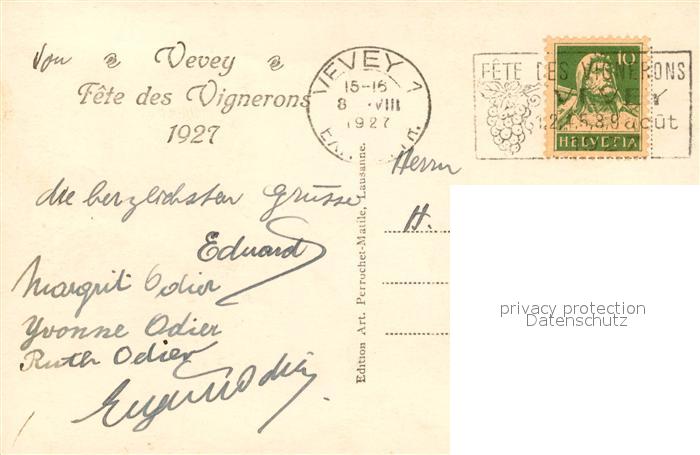 Von Vevey
Fête des Vignerons
1927
die herzlichsten Grüsse
Eduard
Margrit Odier
Yvonne Odier
Ruth Odier
Odier
Edition Art. Perrochet-Matile, Lausanne.
VEVEY 1
15-16
8 VIII
1927
FÊTE DES VIGNERONS
août
10
HELVETIA
Herrn
H.
privacy protection
Datenschutz